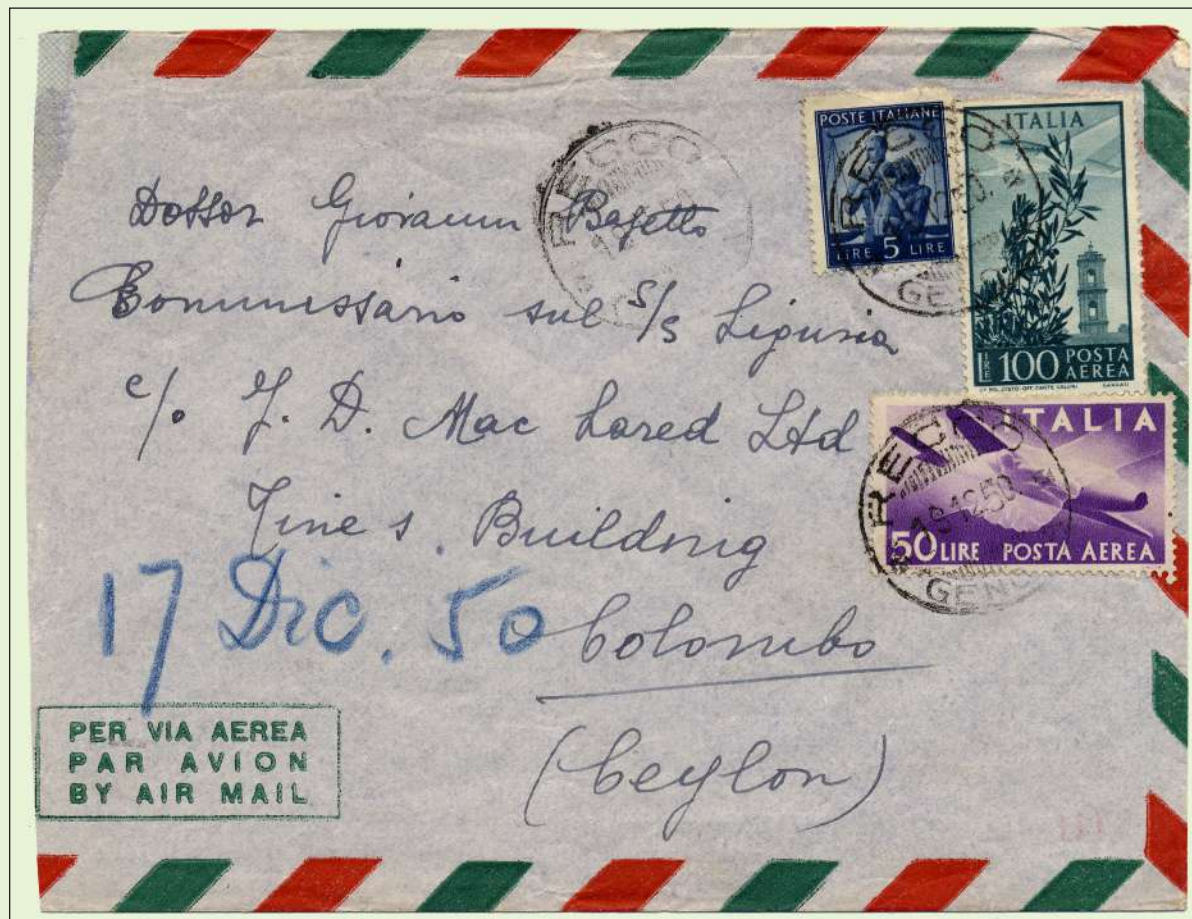 POSTE ITALIANE
LIRE 5 LIRE
ITALIA
LIRE 100 POSTA AEREA
ITALIA
50 LIRE POSTA AEREA
RECCO
RECCO
GENOVA
RECCO
12 50
GENOVA
Dottor Giovanni Bafetto
Commissario sul S/S Liguria
c/o J. D. Mac Lared Ltd
Building
17 Dic. 50
Colombo
(Ceylon)
PER VIA AEREA
PAR AVION
BY AIR MAIL